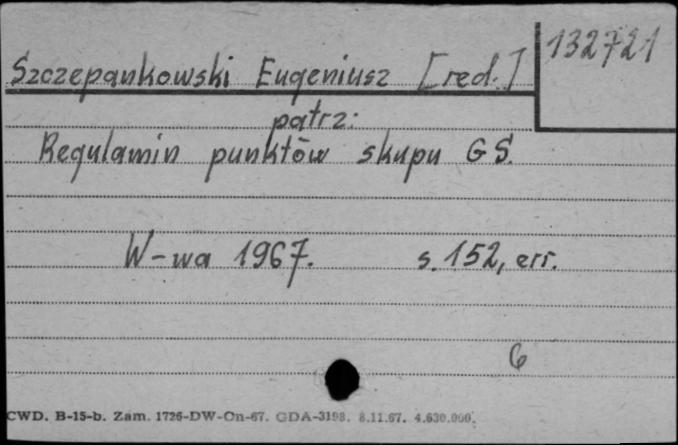 132721
Szczepankowski Eugeniusz [red.]
patrz:
Regulamin punktów skupu GS.
W-wa 1967. s. 152, err.
6
CWD. B-15-b. Zam. 1726-DW-On-67. GDA-3198. 8.11.67. 4.630.000.